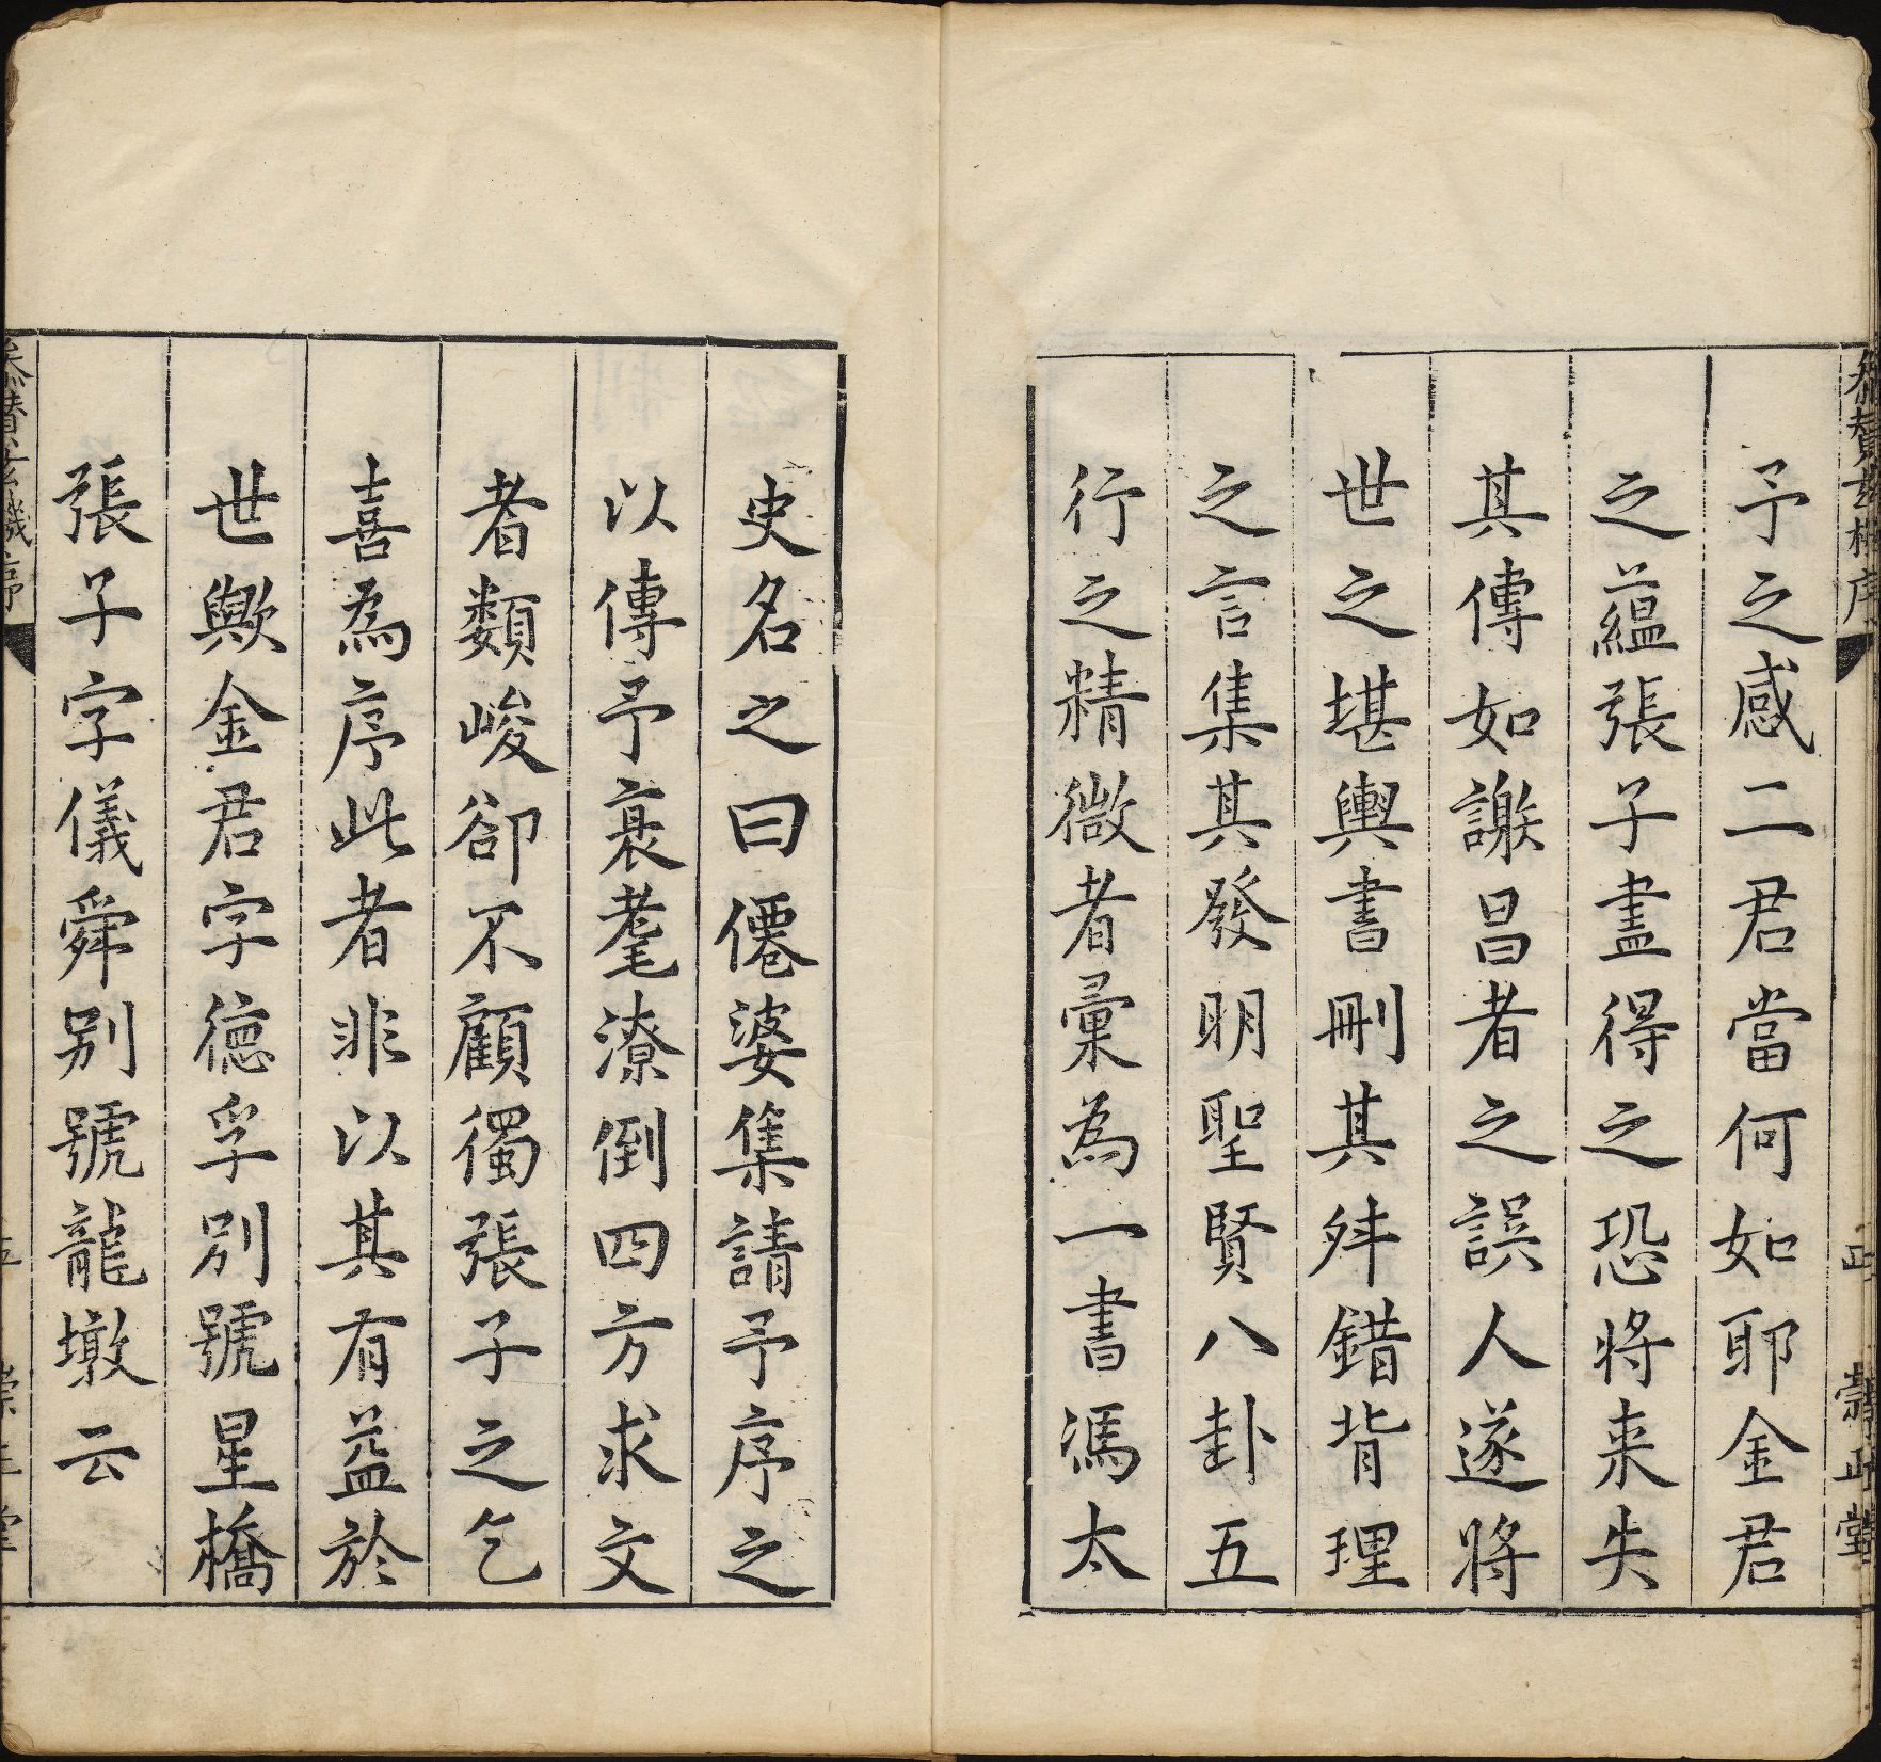 參贊玄機序
崇正堂
予之感二君當何如耶金君
之蘊張子盡得之恐將来失
其傳如謝昌者之誤人遂將
世之堪輿書刪其舛錯背理
之言集其發明聖賢八卦五
行之精微者彙為一書馮太
史名之曰僊婆集請予序之
以傳予衰耄潦倒四方求文
者類峻郤不顧獨張子之乞
喜為序此者非以其有益於
世歟金君字德孚别號星橋
張子字儀舜别號龍墩云